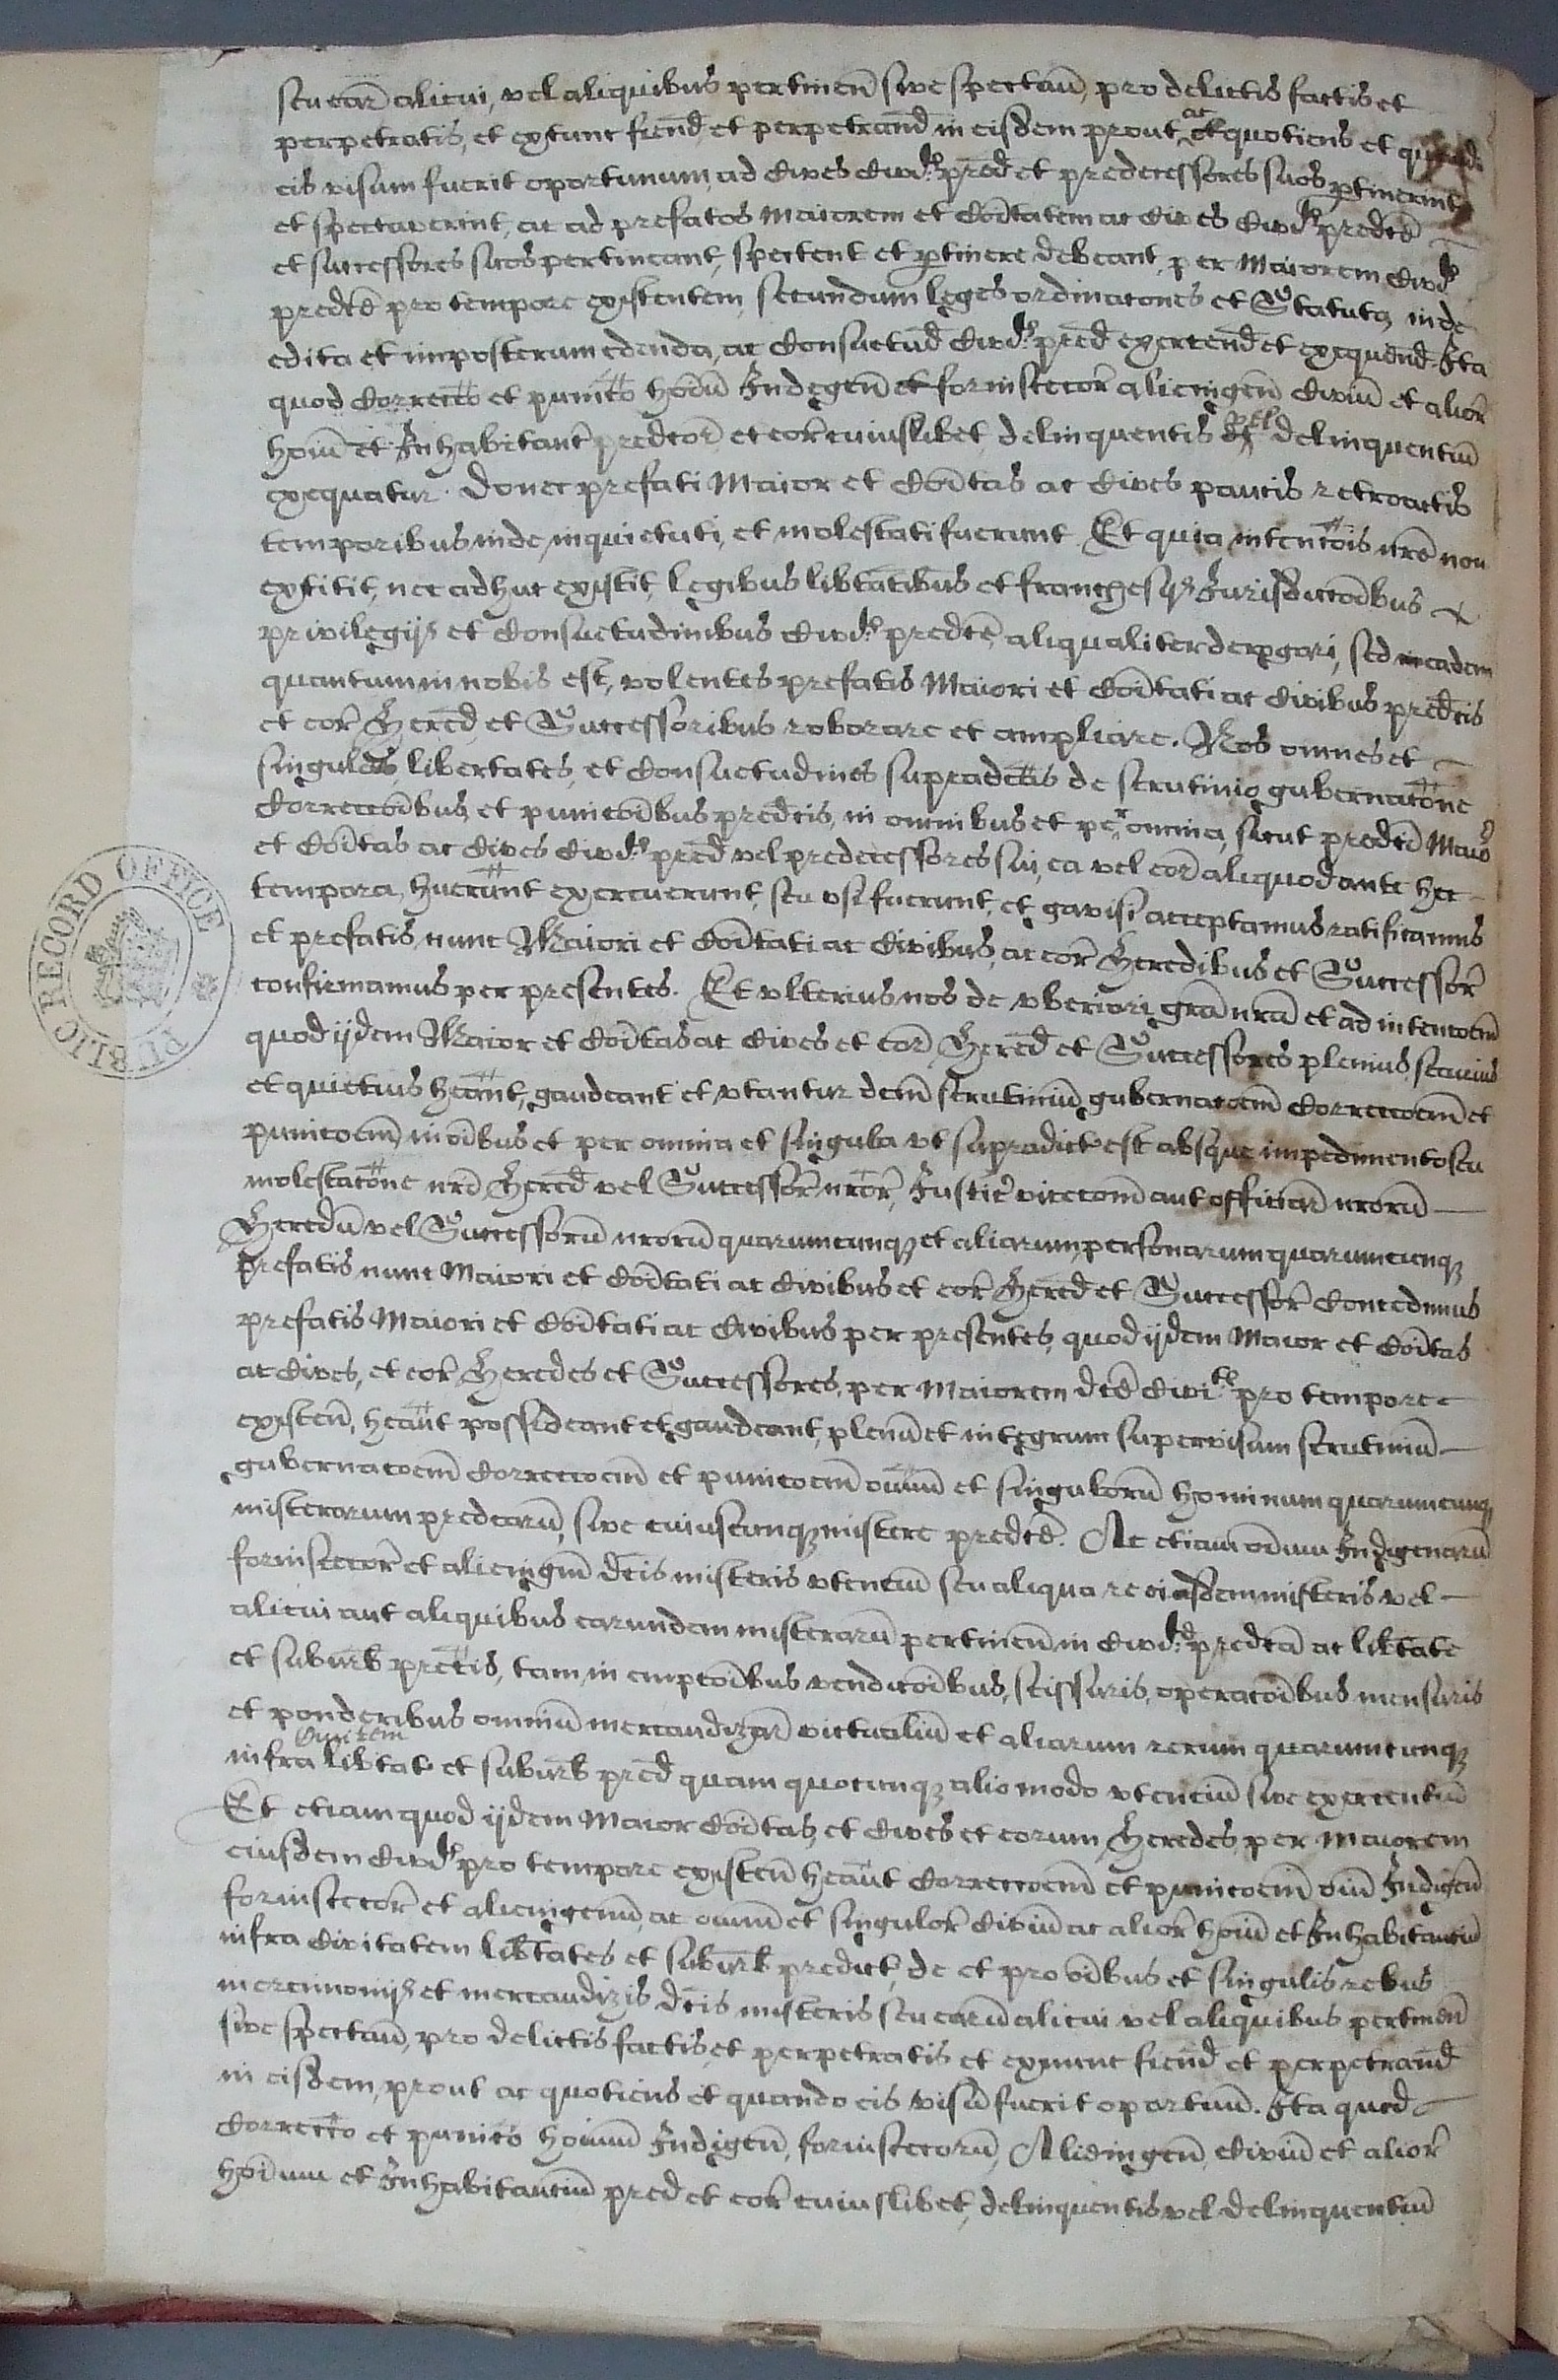 seu ear̄ alicui, vel aliquibus pertineñ sive spectañ, pro delictis factis et
perpetratis, et extunc fiend̄ et perpetrand̄ in eisdem prout ac quotiens et quando
eis visum fuerit oportunum, ad Cives Civit̄ pred̄ et predecessores suos ꝑtinerint
et spectaverint, ac ad prefatos Maiorem et Cōītatem ac Cives Civit̄ predc̄e
et successores suos pertineant, spectent et ꝑtinere debeant, per Maiorem Civit̄
predc̄e pro tempore existentem, secundum leges ordinac̄ones et Statuta, inde
edita et imposterum edenda, ac Consuetud̄ Civit̄ pred̄ exercend̄ et exequend̄. Ita
quod Correcc̄o et punic̄o hōīū Indegeñ et forinsecor̄ alienigeñ Civiū et alior̄
hōīū et Inhabitant̄ predc̄or̄ et eor̄ cuiuslibet, delinquentis vel delinquentiū
exequatur. Donec prefati Maior et Cōītas ac Cives paucis retroactis
temporibus inde, inquietati, et molestati fuerunt. Et quia intenc̄ōis nr̄e non
extitit, nec adhuc existit, legibus lib̄tatibus et franchesijs Iurisdicc̄ōībus
privilegijs et Consuetudinibus Civit̄ predc̄e, aliqualiter derogari, sed eadem
quantum in nobis est, volentes prefatis Maiori et Cōītati ac Civibus predc̄is
et eor̄ Hered̄ et Successoribus roborare et ampliare. Nos omnes et
singulas libertates, et Consuetudines supradc̄as de scrutinio, gubernac̄one
Correcc̄oībus, et punic̄oībus predc̄is, in omnibus et per omnia, sicut predc̄i Maior
et Cōītas ac Cives Civit̄ pred̄ vel predecessores sui, ea vel eor̄ aliquod ante hec
tempora, hūerunt exercuerunt, seu vsi fuerunt, et gavisi acceptamus ratificamus
et prefatis, nunc Maiori et Cōītati ac Civibus, ac eor̄ Heredibus et Successor̄
confirmamus per presentes. Et vlterius nos de vberiori gr̄a nr̄a et ad intenc̄oem̄
quod ijdem Maior et Cōītas ac Cives et eor̄ Hered̄ et Successores plenius, securius
et quietius hēant, gaudeant et vtantur dc̄m̄ scrutiniū, gubernac̄oem̄ Correcc̄oem̄ et
punic̄oem̄, in ōībus et per omnia et singula vt supradict̄ est absque impedimento seu
molestac̄one nr̄i Hered̄ vel Successor̄ nr̄or̄, Iustic̄ vicecom̄ aut officiar̄ nrorū
Heredū vel Successorū nrorū quarumcunqȝ et aliarum personarum quarumcunqȝ
Prefatis nunc Maiori et Cōītati ac Civibus et eor̄ Hered̄ et Successor̄ Concedimus
prefatis Maiori et Cōītati ac Civibus per presentes, quod ijdem Maior et Cōītas
ac Cives, et eor̄ Heredes et Successores, per Maiorem dc̄e Civit̄ pro tempore
existeñ, hēant possideant et gaudeant, plenū et integrum supervisum scrutiniū
gubernac̄oem̄ Correcc̄oem̄ et punic̄oem̄ ōīum et singulorū hominum quorumcunqȝ
misterarum predc̄arū, sive cuiuscunqȝ mistere predc̄e. Ac etiam ōīum Indigenarū
forinsecor̄ et alienigeñ dc̄is misteris vteneiū seu aliqua re eisdem misteris vel
alicui aut aliquibus earundem misterarū pertineñ in Civit̄ predc̄a ac lib̄tate
et suburb̄ predc̄is, tam, in empc̄oībus vendic̄oībus, scissuris, operac̄oībus mensuris
et ponderibus omniū mercandizar̄ victualiū et aliarum rerum quarumcunqȝ
infra lib̄tat̄ et suburb̄ pred̄ quam quocunqȝ alio modo vtenciū sive exercentiū
Et etiam quod ijdem Maior Cōītas, et Cives et eorum Heredes, per Maiorem
eiusdem Civit̄ pro tempore existeñ hēant Correcc̄oem̄ et punic̄oem̄ ōīū Indigeñ
forinsecor̄ et alienigenū, ac ōīum et singulor̄ Civiū ac alior̄ hoīū et Inhabitanciū
infra Civitatem lib̄tates et suburb̄ predict̄, de et pro ōībus et singulis rebus
mercimonijs et mercandizis dc̄is misteris seu earū alicui vel aliquibus pertineñ
sive spectañ, pro delictis factis, et perpetratis et exnunc fiend̄ et perpetrand̄
in eisdem, prout ac quotiens et quando eis visū fuerit oportunū. Ita quod
Correcc̄o et punic̄o hōīum Indigeñ, forinsecorū, Alienigeñ, Civiū et alior̄
hōīum et Inhabitantiū pred̄ et eor̄ cuiuslibet, delinquentis vel delinquentiū
PUBLIC RECORD OFFICE